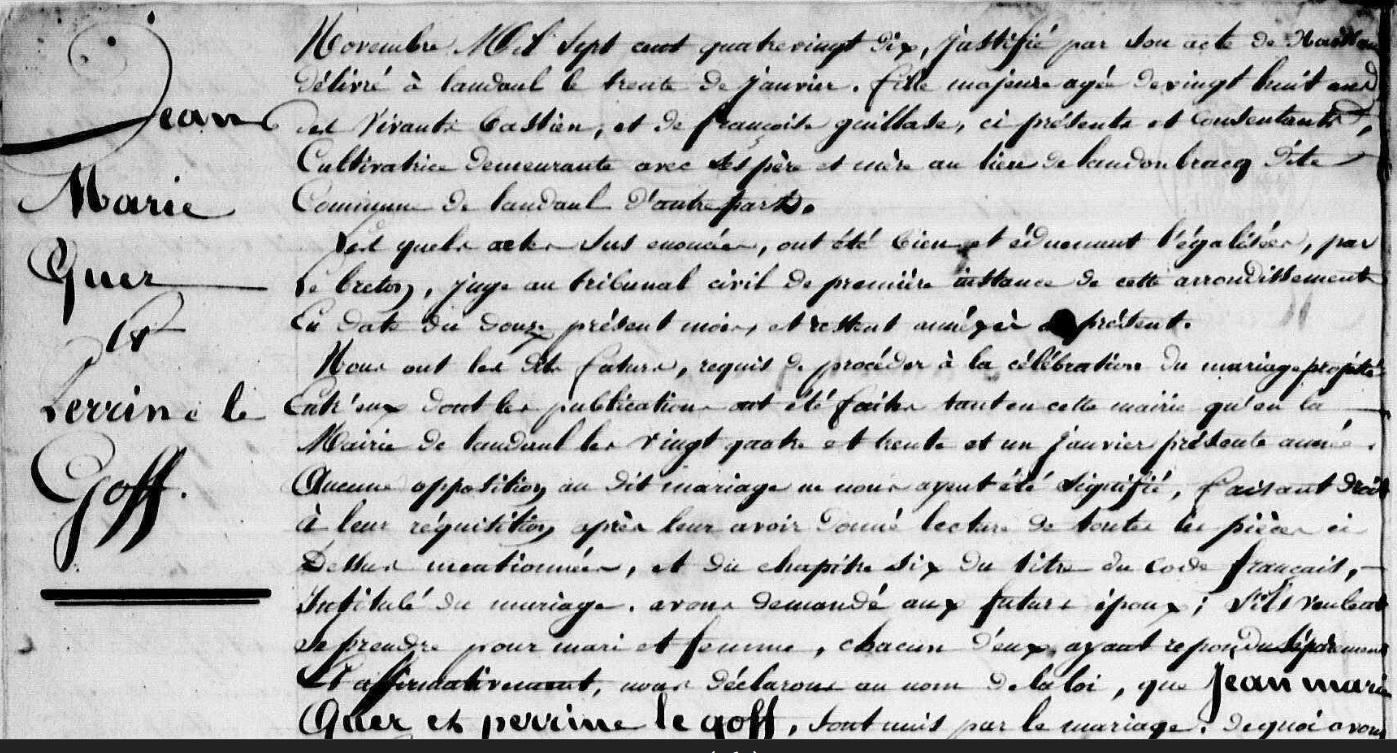 Jean
Marie
Quer
et
Perrine le
Goff.
Novembre Mil sept cent quatrevingt dix, justifié par son acte de
délivré à landaul le trente de janvier. fille majeure agée de vingt huit ans
des vivants bastien, et de françoise guillase, ci présents et Consentants,
Cultivatrice demeurante avec ses père et mère au lieu de landonbracq dite
Commune de landaul d'autre part.
Les quels actes sus enoncés, ont été bien et duement légalisées, par
Le breton, juge au tribunal civil de première instance de cette arrondissement
En date du douze présent mois, et restent annéxés présent.
Nous ont les dits futurs, requis de procéder à la célébration du mariage projeté
Entr'eux dont les publications ont été faites tant en cette mairie qu'en la
Mairie de landaul les vingt quatre et trente et un janvier présente année.
Aucune opposition au dit mariage ne nous ayent été signifié, faisant droit
à leur réquisition après leur avoir donné lecture de toutes les pièces ci
Dessus mentionnées, et du chapitre six du titre du code français,
Intitulé du mariage. avons demandé aux futurs époux; s'ils veulent
se prendre pour mari et femme, chacun d'eux ayant repondu séparement
Et affirmativement, nous déclarons au nom de la loi, que Jean marie
Quer et perrine le goff, sont unis par le mariage. de quoi avons